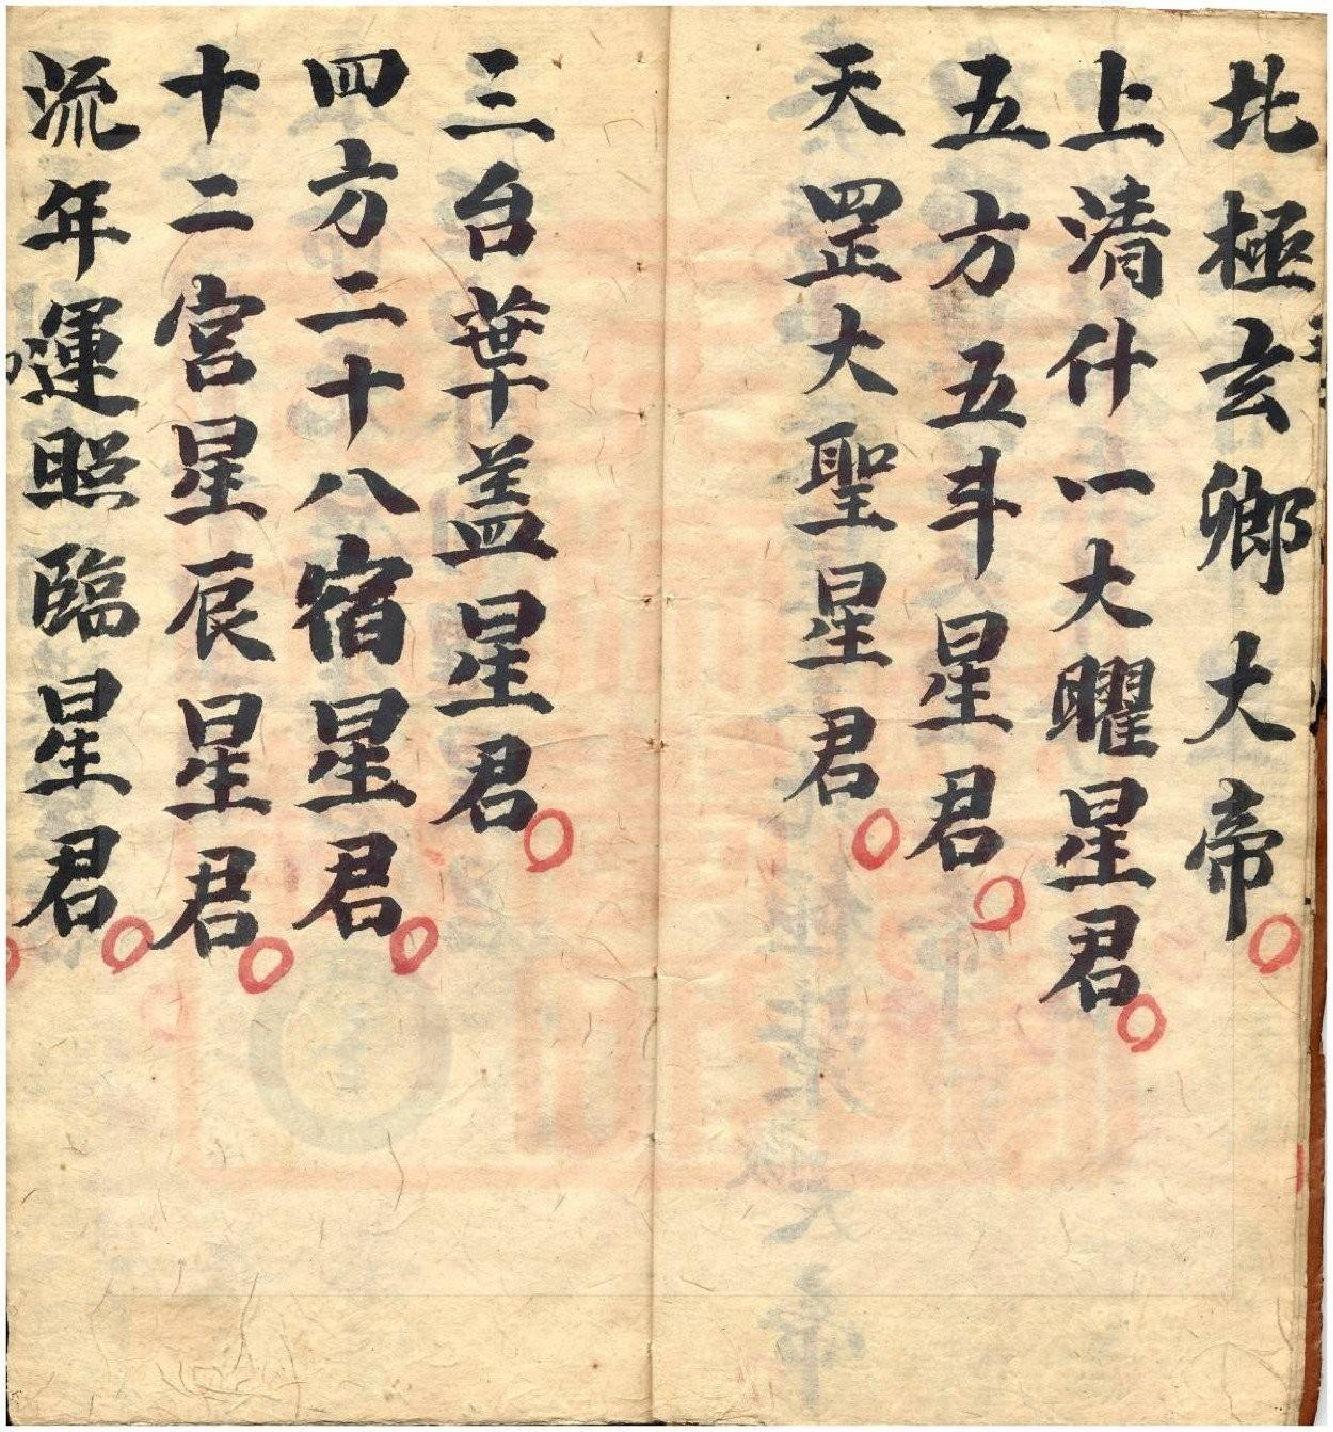 北極玄卿大帝
上清什一大曜星君
五方五斗星君
天罡大聖星君
三台葉盖星君
四方二十八宿星君
十二宮星辰星君
流年運照臨星君